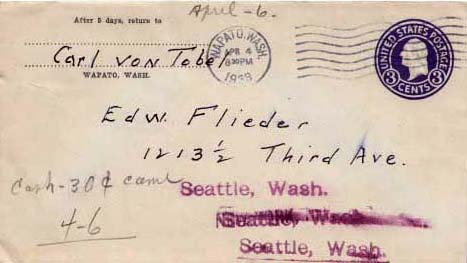 April-6.
After 5 days, return to
Carl von Tobel
WAPATO, WASH.
WAPATO, WASH.
APR 4
8 30 PM
UNITED STATES POSTAGE
3 3
CENTS
Edw. Flieder
1213 1/2 Third Ave.
Cash-30¢ came
4-6
Seattle, Wash.
Seattle, Wash.
Seattle, Wash.